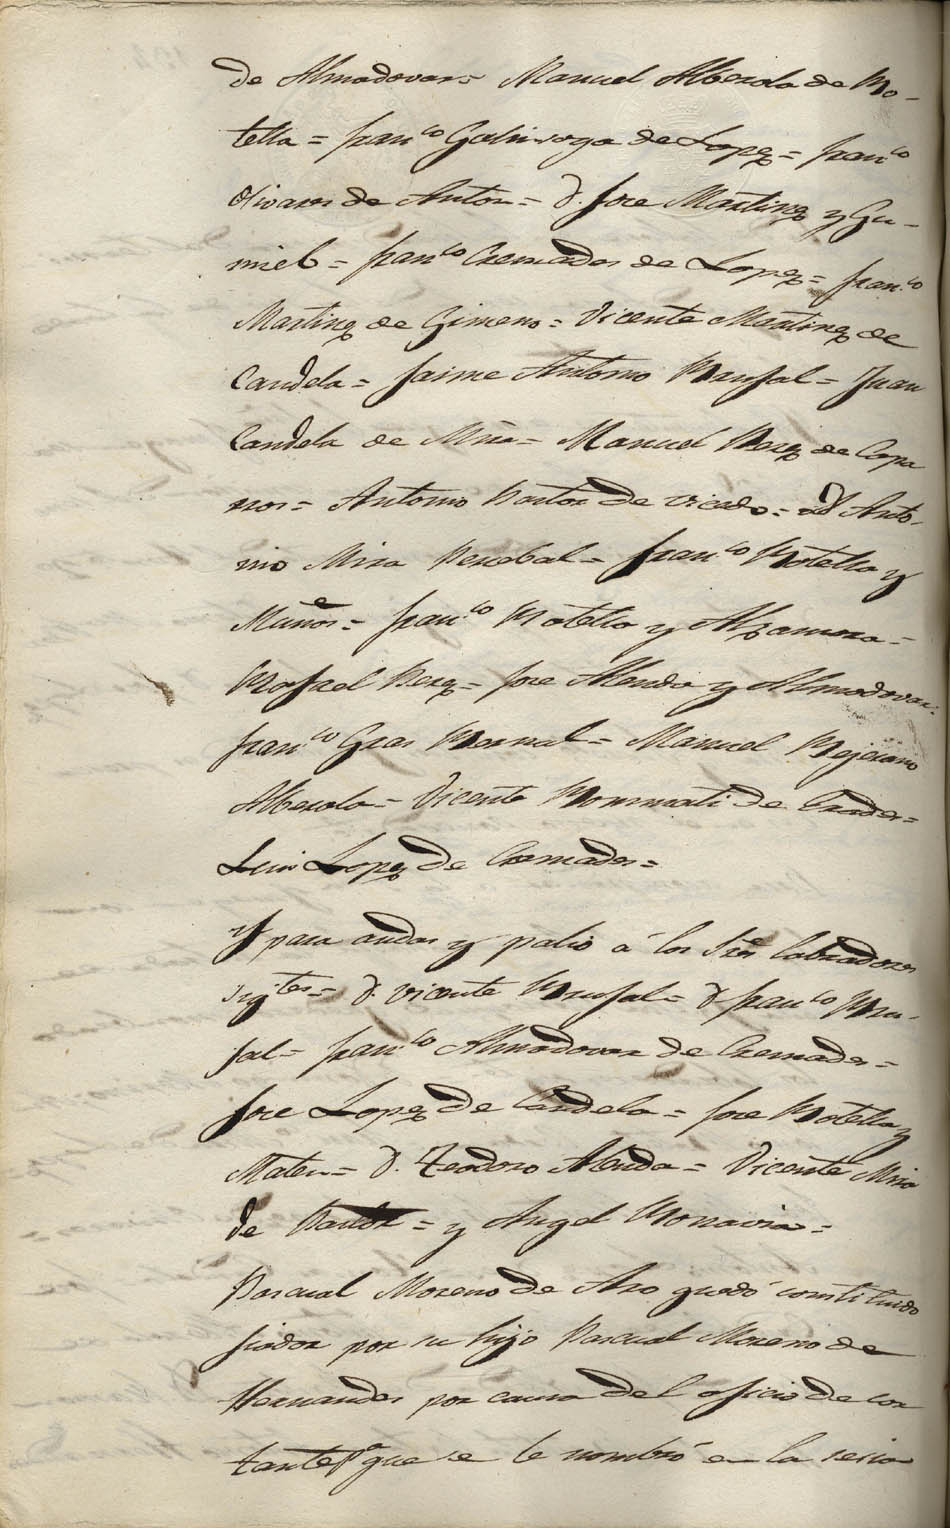 de Almadovar = Manuel Alberola de Bo-
tella = Fran.co Galinsoga de Lopez = Fran.co
Olivares de Anton = D. Jose Martinez y Gu-
miel = Fran.co Cremades de Lopez = Fran.co
Martinez de Gimeno = Vicente Martinez de
Candela = Jaime Antonio Brufal = Juan
Candela de Mira = Manuel Perez de Copa
nos = Antonio Pastor de Vicedo = D. Anto-
nio Mira Percebal = Fran.co Botella y
Muñoz = Fran.co Botella y Alzamora =
Rafael Perez = Jose Alenda y Almodovar =
Fran.co Gras Bernal = Manuel Bejerano
Alberola = Vicente Bonmati de =
Luis Lopez de Cremades =
Y para andas y palio á los Sres labradores
sigtes = D. Vicente Brufal = D. Fran.co Bru-
fal = Fran.co Almodovar de Cremades =
Jose Lopez de Candela = Jose Botella y
Mateu = D. Teodoro Alenda = Vicente Mira
de Pastor = y Angel =
Pascual Moreno de Aro quedó constituido
fiador por su hijo Pascual Moreno de
Hernandez por causa del oficio de cor
tante pa que se le nombró en la sesion